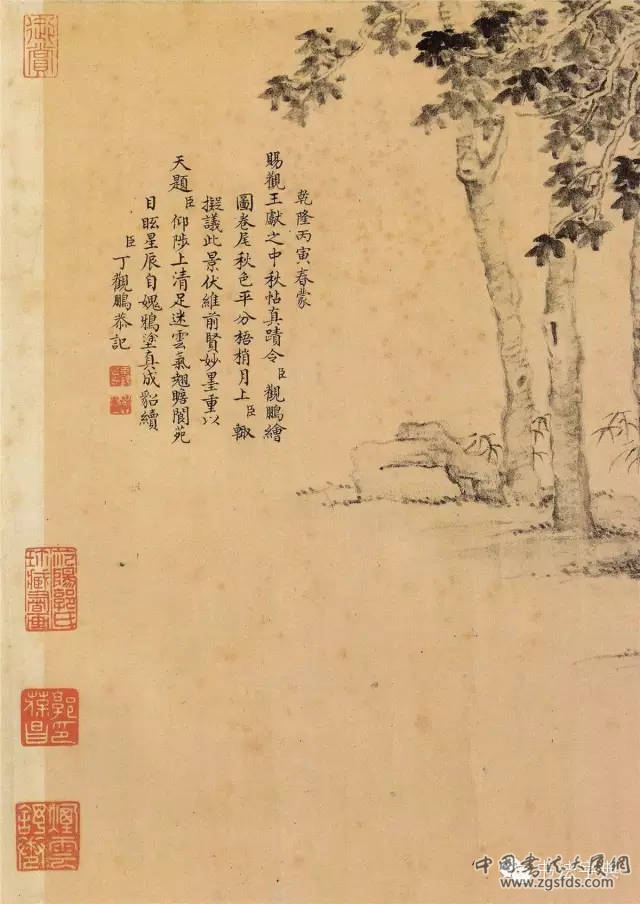 乾隆丙寅春蒙
賜觀王獻之中秋帖真蹟令臣觀鵬繪
圖卷尾秋色平分梧梢月上臣輙
擬議此景伏維前賢妙墨重以
天題臣仰陟上清足迷雲氣翹瞻閬苑
目眩星辰自媿鴉塗真成貂續
臣丁觀鵬恭記
御賞
郭氏
珍藏書畫
郭
葆昌
中國書法大厦網
www.zgsfds.com